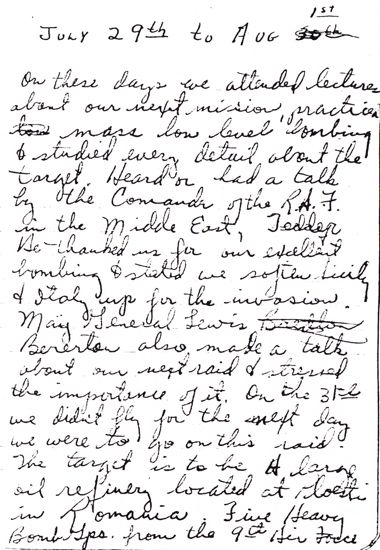 1st
July 29th to Aug
On these days we attended lectures
about our next mission, practiced
mass low level bombing
& studied every detail about the
target. Heard or had a talk
by the Comander of the R.A.F.
in the Middle East, Tedder
He thanked us for our excellent
bombing & stated we soften Sicily
& Italy up for the invasion.
May General Lewis
Bererton also made a talk
about our next raid & stressed
the importance of it. On the 31st
we didn't fly for the next day
we were to go on this raid.
The target is to be A large
oil refinery located at Ploesti
in Romania. Five Heavy
Bomb Gps. from the 9th Air Force